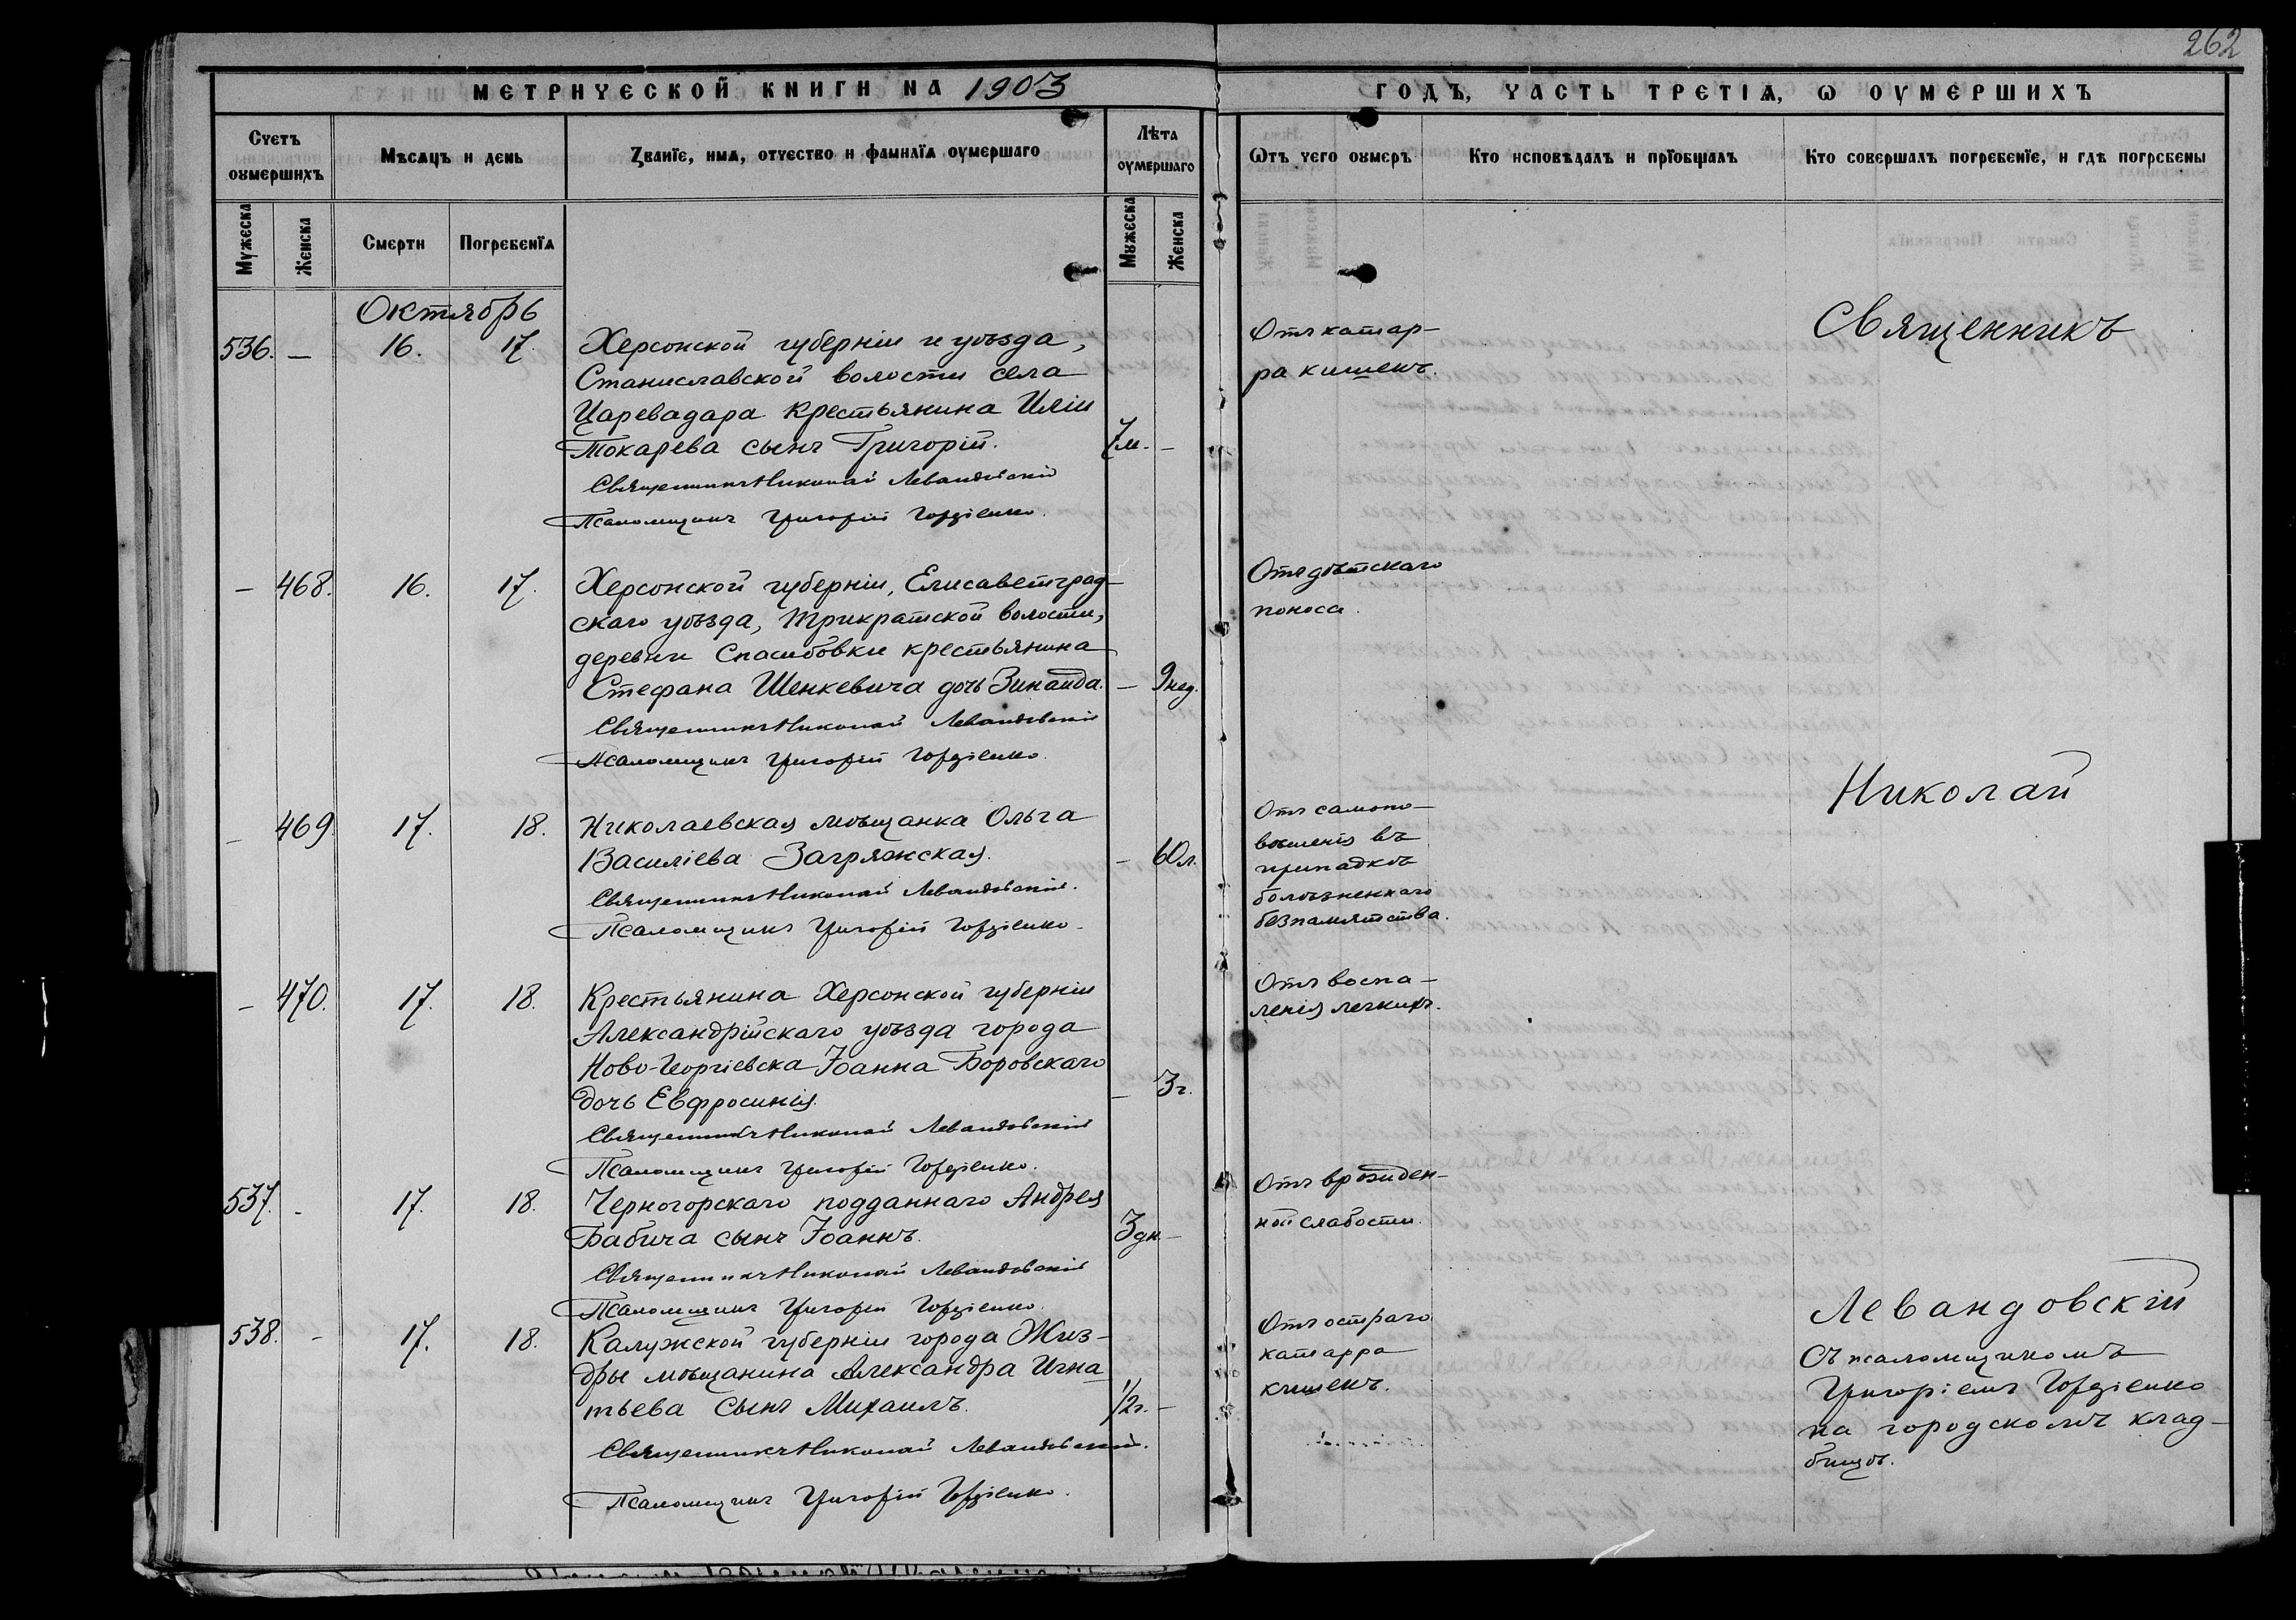 262
МЕТРИЧЕСКОЙ КНИГИ НА 1903 ГОДЪ, ЧАСТЬ ТРЕТІѦ, Ѡ ОУМЕРШИХЪ
Счетъ оумершихъ
Мѣсѧцъ и день
Званїе, имѧ, отчество и фамилїѧ оумершаго
Лѣта оумершаго
Ѿтъ чего оумеръ
Кто исповѣдалъ и прїобщалъ
Кто совершалъ погребенїе, и гдѣ погребены
Мужеска
Женска
Смерти
Погребенїѧ
Мужеска
Женска
Октябрь
536. — 16. 17. Херсонской губерніи и уѣзда,
Станиславской волости села
Царевадара крестьянина Иліи
Токарева сынъ Григорій. 7 м. —
Священникъ Николай Левандовскій
Псаломщикъ Григорій Гордіенко.
Отъ катар-
ра кишекъ.
— 468. 16. 17. Херсонской губерніи, Елисаветград-
скаго уѣзда, Трикратской волости,
деревни Спасибовки крестьянина
Стефана Шенкевича дочь Зинаида. — 9 нед.
Священникъ Николай Левандовскій
Псаломщикъ Григорій Гордіенко.
Отъ дѣтскаго
поноса.
— 469. 17. 18. Николаевская мѣщанка Ольга
Василіева Загряжская. — 60 л.
Священникъ Николай Левандовскій.
Псаломщикъ Григорій Гордіенко.
Отъ самопо-
вѣшенія въ
припадкѣ
болѣзненнаго
безпамятства.
— 470. 17. 18. Крестьянина Херсонской губерніи
Александрійскаго уѣзда города
Ново-Георгіевска Іоанна Боровскаго
дочь Евфросинія. — 3 г.
Священникъ Николай Левандовскій
Псаломщикъ Григорій Гордіенко.
Отъ воспа-
ленія легкихъ.
537. - 17. 18. Черногорскаго подданнаго Андрея
Бабича сынъ Іоаннъ. 3 дн. —
Священникъ Николай Левандовскій
Псаломщикъ Григорій Гордіенко.
Отъ врожден-
ной слабости.
538. - 17. 18. Калужской губерніи города Жиз-
дры мѣщанина Александра Игна-
тьева сынъ Михаилъ. 1/2 г. —
Священникъ Николай Левандовскій.
Псаломщикъ Григорій Гордіенко.
Отъ остраго
катарра
кишекъ.
Священникъ
Николай
Левандовскій
съ псаломщикомъ
Григоріемъ Гордіенко
на городскомъ клад-
бищѣ.